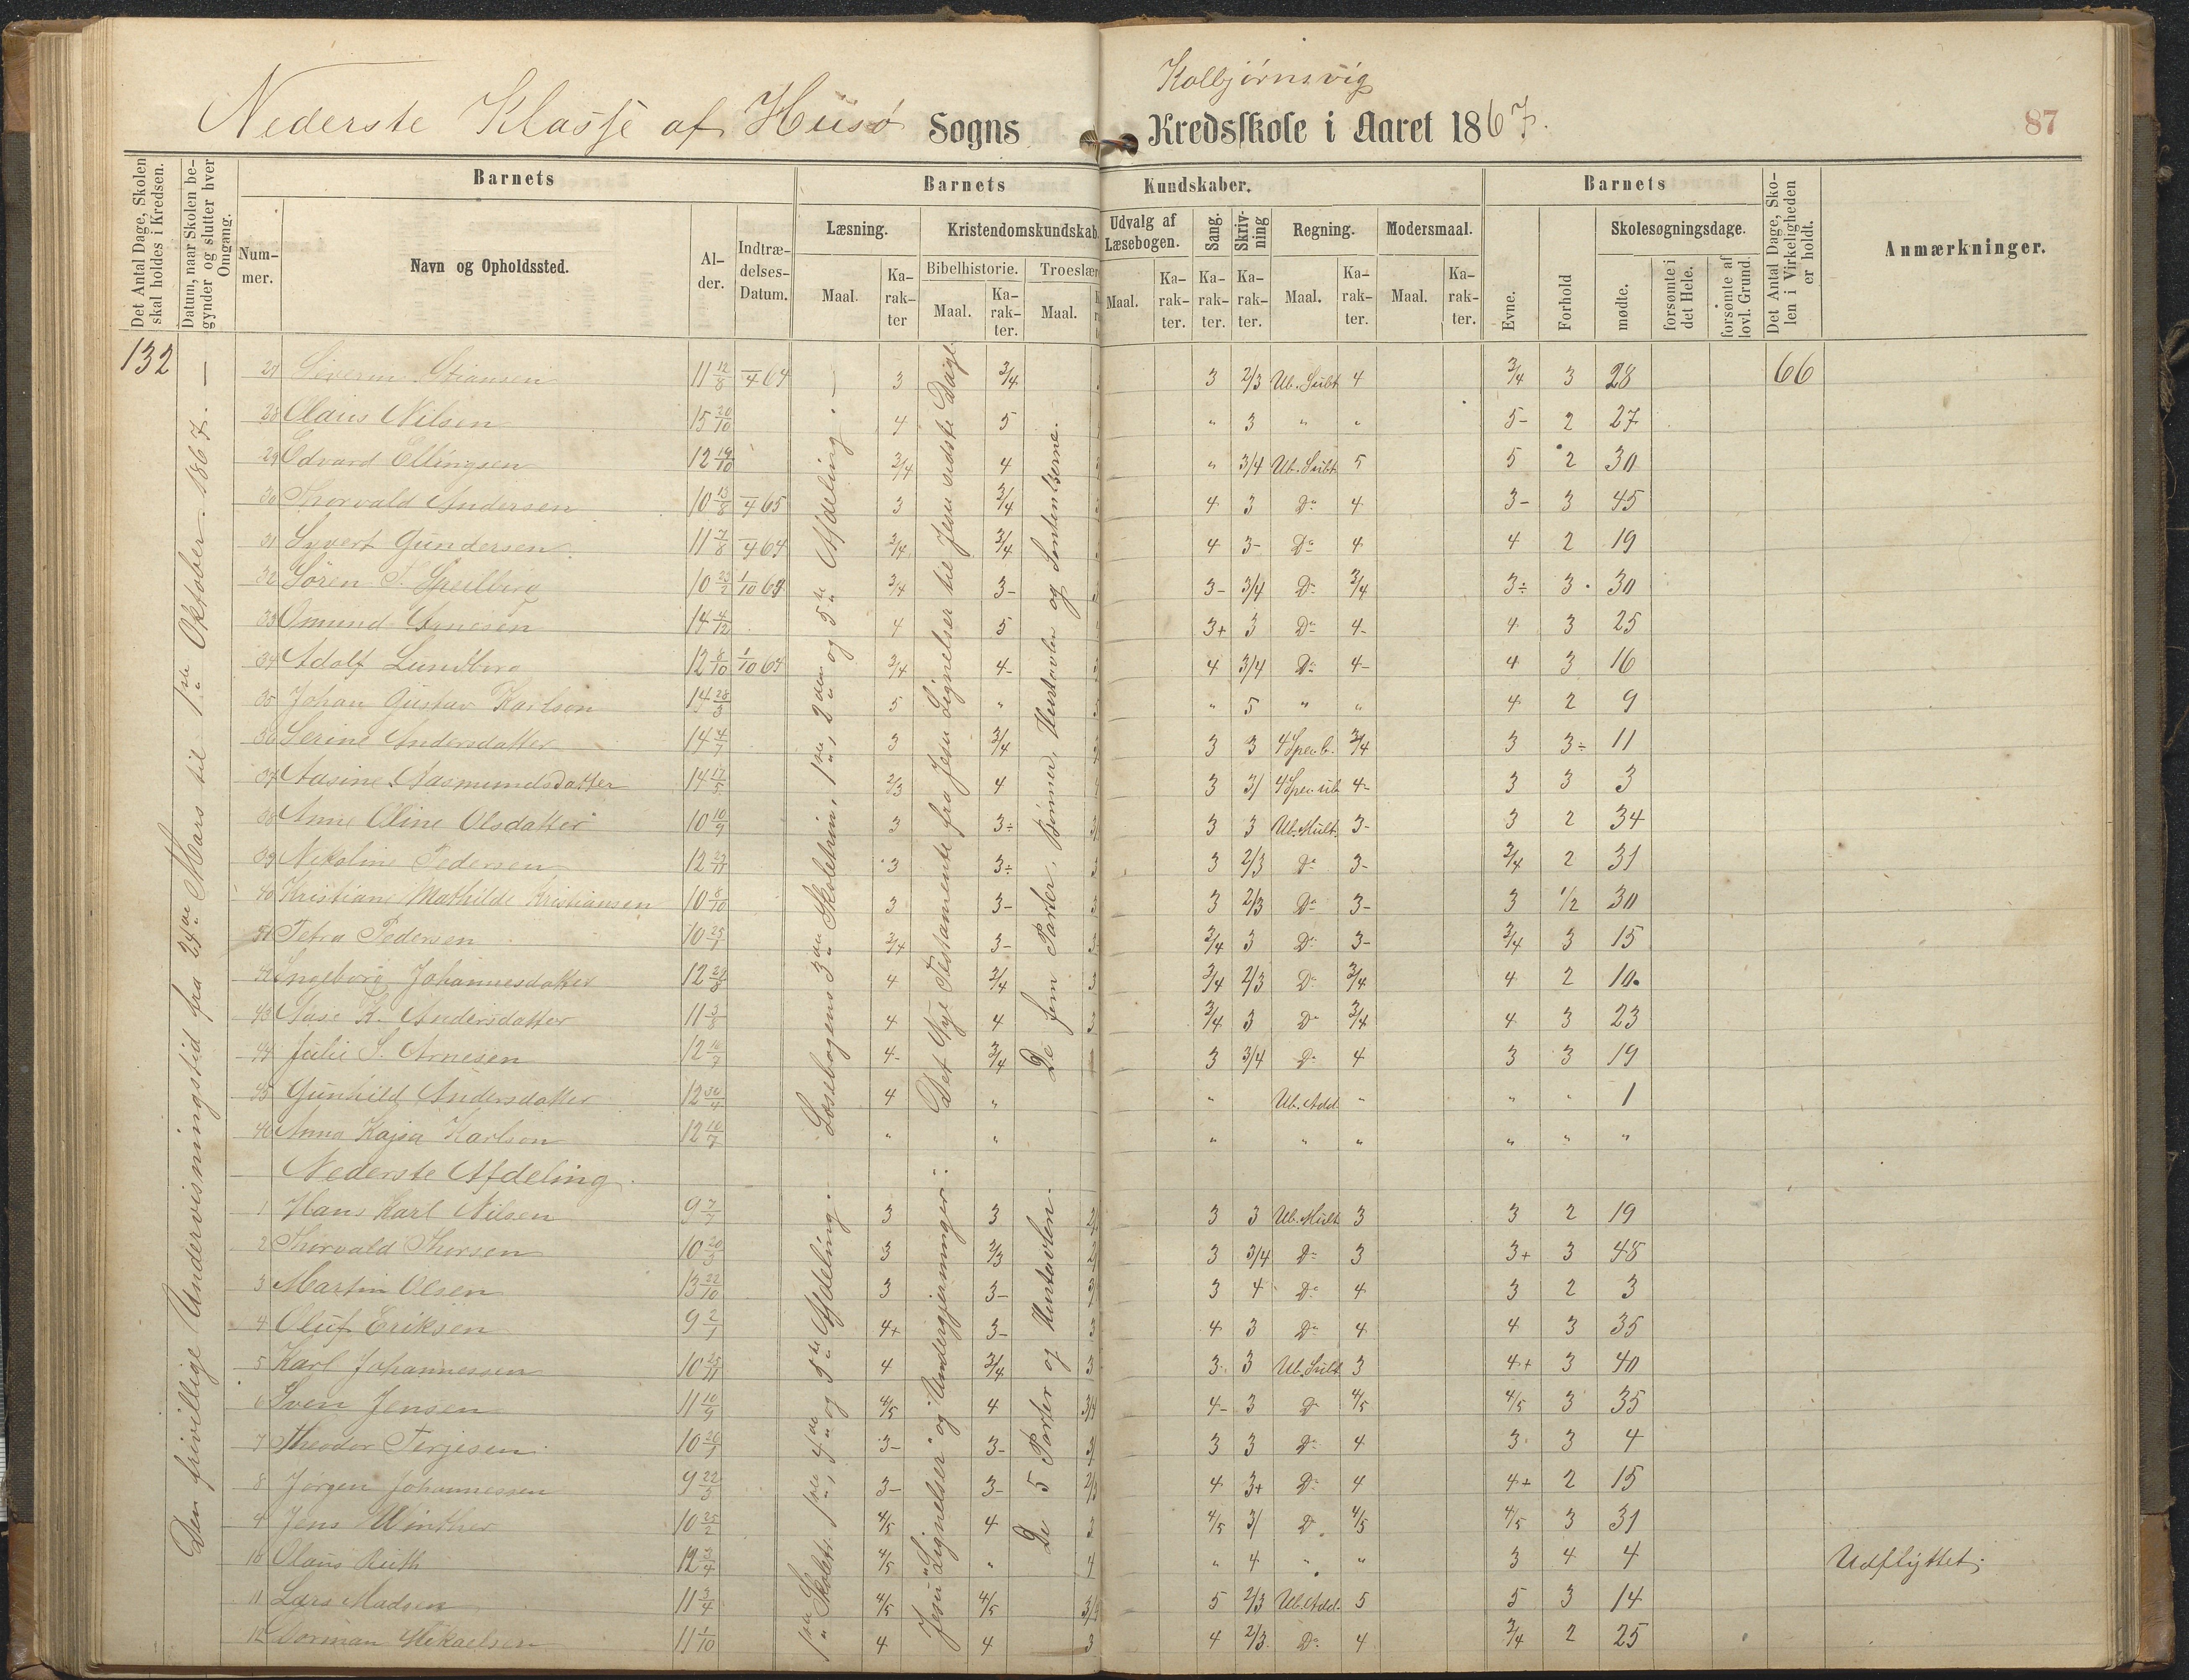 Kolbjørnsvig
Nederste Klasse af Husø Sogns Kredsskole i Aaret 1867.
87
Det Antal Dage, Skolen skal holdes i Kredsen.
Datum, naar Skolen begynder og slutter hver Omgang.
Barnets
Barnets Kundskaber.
Barnets
Det Antal Dage, Skolen i Virkeligheden er holdt.
Anmærkninger.
Nummer.
Navn og Opholdssted.
Alder.
Indtrædelses-Datum.
Læsning.
Kristendomskundskab.
Udvalg af Læsebogen.
Sang.
Skrivning
Regning.
Modersmaal.
Evne.
Forhold
Skolesøgningsdage.
Maal.
Karakter
Bibelhistorie.
Troeslær
Maal.
Karakter.
Maal.
Maal.
Karakter.
Karakter.
Karakter.
Maal.
Karakter.
Maal.
Karakter.
mødte.
forsømte i det Hele.
forsømte af lovl. Grund.
132
Den frivillige Undervisningstid fra 24de Mars til 1ste Oktober 1867. —
Læsebogens 3die Skoletrin, 1ste, 2den og 5te Afdeling. —
Det Nye Testamente fra Jesu Lignelser til Jesu sidste Dage.
De fem Parter, Bønner, Hustavlen og Sententserne.
27 Severin Stiansen 11 12/8 —/4 64 3 3/4 3 2/3 Ub. Subt 4 3/4 3 28 66
28 Olaus Nilsen 15 20/10 4 5 " 3 " " 5- 2 27
29 Edvard Ellingsen 12 19/10 3/4 4 " 3/4 Ub. Subt 5 5 2 30
30 Thorvald Andersen 10 13/8 —/4 65 3 3/4 4 3 Do 4 3- 3 45
31 Syvert Gundersen 11 7/8 —/4 64 3/4 3/4 4 3- Do 4 4 2 19
32 Søren 10 23/2 1/10 64 3/4 3- 3- 3/4 Do 3/4 3÷ 3 30
33 Omund Arnesen 14 4/12 4 5 3+ 3 Do 4- 4 3 25
34 Adolf Lundberg 12 8/10 1/10 64 3/4 4- 4 3/4 Do 4- 4 3 16
35 Johan Gustav Karlson 14 28/3 5 " " 5 " " 4 2 9
36 Serine Andersdatter 14 4/7 3 3/4 3 3 4 Spec. b. 3/4 3 3÷ 11
37 Aasine Aasmundsdatter 14 17/5 2/3 4 3 3/ 4 Spec. ub 4- 3 3 3
38 Anne Oline Olsdatter 10 10/9 3 3÷ 3 3 Ub. Mult. 3- 3 2 34
39 Nikoline Pedersen 12 27/11 3 3÷ 3 2/3 Do 3- 3/4 2 31
40 Kristiane Mathilde Kristiansen 10 8/10 3 3- 3 2/3 Do 3- 3 1/2 30
41 Petra Pedersen 10 25/1 3/4 3- 3/4 3 Do 3- 3/4 3 15
42 Ingeborg Johannesdatter 12 29/8 4 3/4 3/4 2/3 Do 3/4 4 2 10.
43 Aase K. Andersdatter 11 3/8 4 4 3/4 3 Do 3/4 4 3 23
44 Julie S. Arnesen 12 10/7 4- 3/4 3 3/4 Do 4 3 3 19
45 Gunhild Andersdatter 12 30/4 4 " " Ub. Add. " " " 1
46 Anna Kajsa Karlson 12 10/7 " " " " " " " "
Nederste Afdeling.
1ste Skoletr. 1ste, 4de og 5te Afdeling.
Jesu "Lignelser" og "Undergjerninger".
De 5 Parter og Hustavlen.
1 Hans Karl Nilsen 9 7/7 3 3 3 3 Ub. Mult 3 3 2 19
2 Thorvald Thorsen 10 20/3 3 2/3 3 3/4 Do 3 3+ 3 48
3 Martin Olsen 13 22/10 3 3- 3 4 Do 4 3 2 3
4 Oluf Eriksen 9 2/1 4+ 3- 4 3 Do 4 4 3 35
5 Karl Johannessen 10 25/11 4 3/4 3 3 Ub. Subt 3 4+ 3 40
6 Sven Jensen 11 10/9 4/5 4 4- 3 Do 4/5 4/5 3 35
7 Theodor Terjesen 10 26/1 3- 3- 3 3 Do 4 3 3 4
8 Jørgen Johannessen 9 22/3 3- 3- 4 3+ Do 4 4+ 2 15
9 Jens Winther 10 25/2 4/5 4 4/5 3/ Do 4/5 4/5 3 31
10 Olaus Ruth 12 3/4 4/5 " " 4 " " 3 4 4 Udflyttet.
11 Lars Madsen 11 3/4 4/5 4/5 5 2/3 Ub. Add. 5 5 3 14
12 Norman Mikaelsen 11 1/10 4 4 4 2/3 Do 4 3/4 2 25